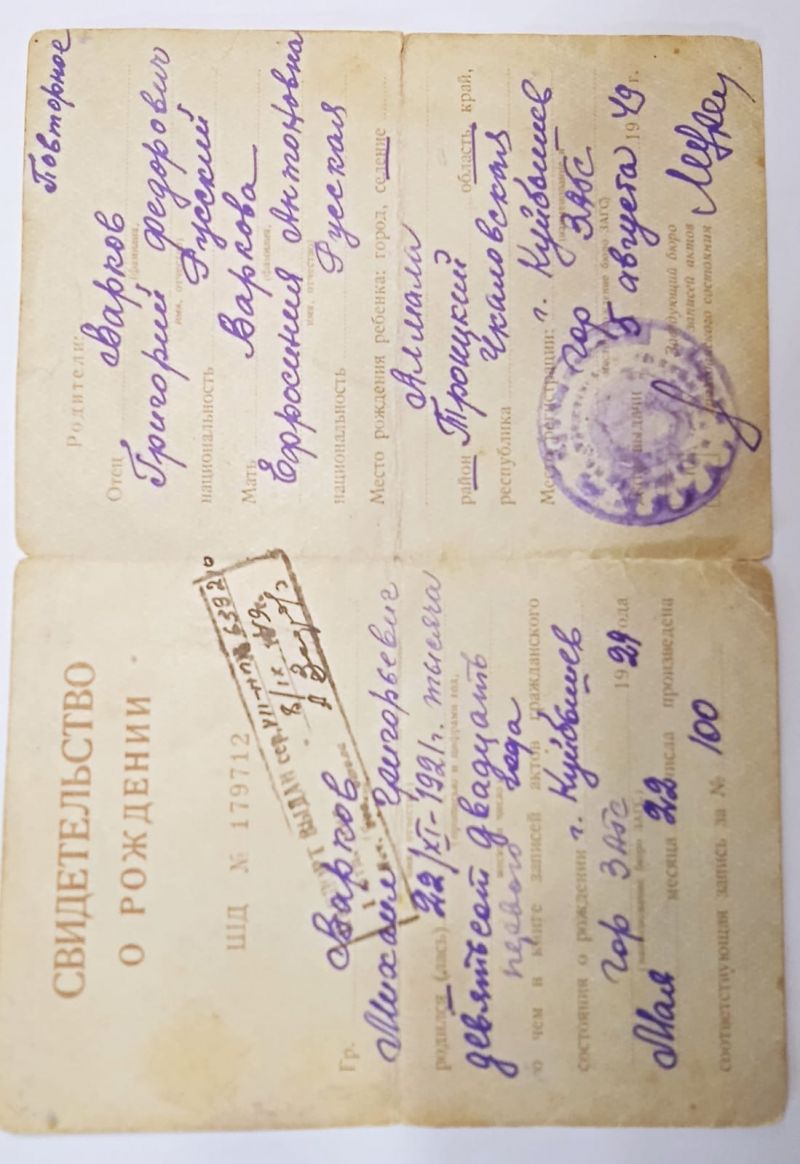 СВИДЕТЕЛЬСТВО
О РОЖДЕНИИ
ШД № 179712
ВЫДАН сер. VII-ПП № 639210
8/IX 49г.
Гр. Варков
Михаил Григорьевич
родился (лась) 22/XI-1921г. тысяча
девятьсот двадцать
первого года
о чем в книге записей актов гражданского
состояния о рождении г. Куйбышев
Гор ЗАГС 1929 года
Мая месяца 22 числа произведена
соответствующая запись за № 100
Повторное
Родители:
Отец Варков
(фамилия,
Григорий Федорович
имя, отчество)
национальность Русский
Мать Варкова
(фамилия,
Ефросиния Антоновна
имя, отчество)
национальность Русская
Место рождения ребенка: город, селение
район Троицкий область, край,
республика Чкаловская
Место регистрации: г. Куйбышев
Гор ЗАГС
выдачи 5 августа 1949 г.
Заведующий бюро
записей актов
гражданского состояния